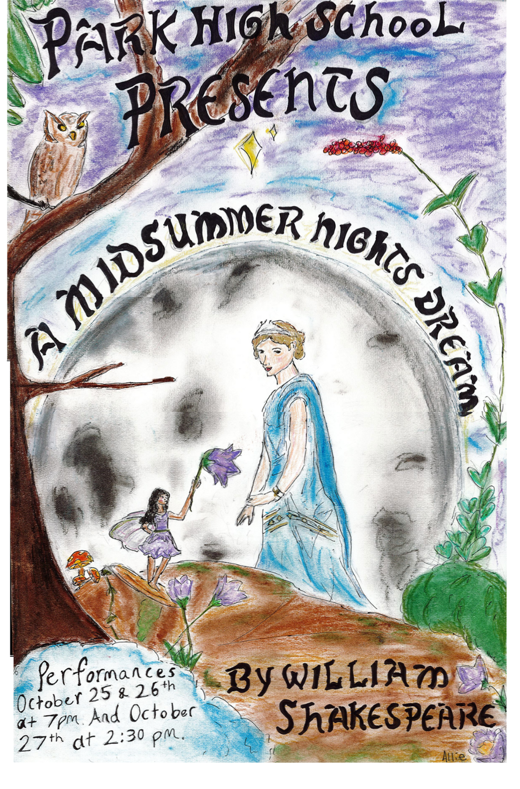 PARK HIGH SCHOOL
PRESENTS
A MIDSUMMER NIGHTS DREAM
Performances
October 25 & 26th
at 7pm. And October
27th at 2:30 pm.
By WILLIAM
SHAKESPEARE
Allie